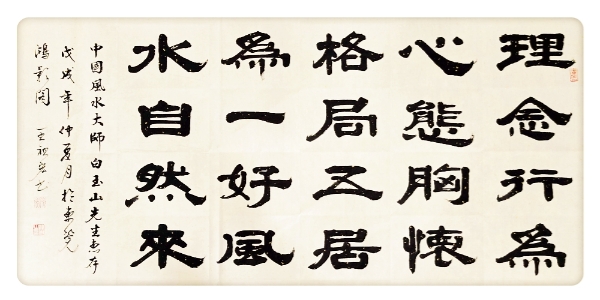 理念行為
心態胸懷
格局五居
為一好風
水自然來
中國風水大師白玉山先生惠存
戊戌年仲夏月於東莞
鴻影閣